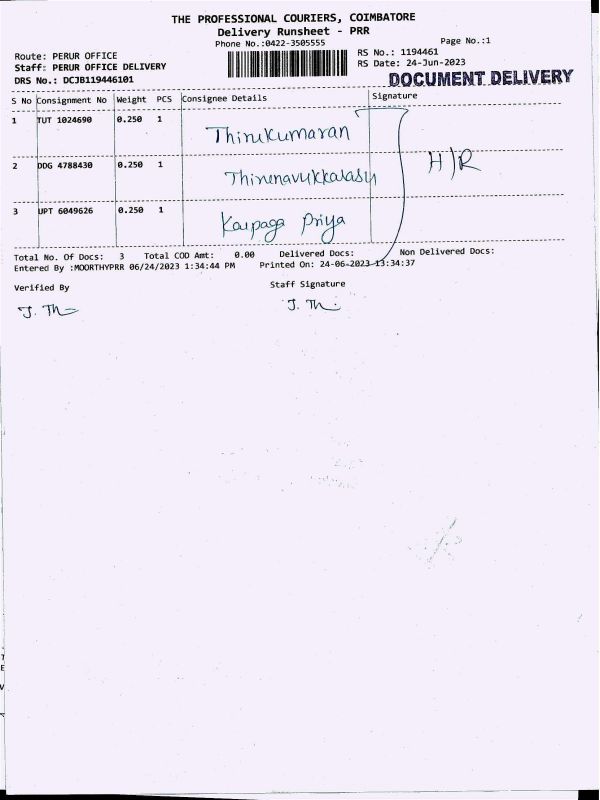 THE PROFESSIONAL COURIERS, COIMBATORE
Delivery Runsheet - PRR
Phone No.:0422-3505555
Page No.:1
Route: PERUR OFFICE
RS No.: 1194461
Staff: PERUR OFFICE DELIVERY
RS Date: 24-Jun-2023
DRS No.: DCJB119446101
DOCUMENT DELIVERY
S No Consignment No Weight PCS Consignee Details Signature
1 TUT 1024690 0.250 1 Thirukumaran
2 DDG 4788430 0.250 1 Thirunavukkarasu H/R
3 UPT 6049626 0.250 1 Karpaga Priya
Total No. Of Docs: 3 Total COD Amt: 0.00 Delivered Docs: Non Delivered Docs:
Entered By :MOORTHYPRR 06/24/2023 1:34:44 PM Printed On: 24-06-2023 13:34:37
Verified By Staff Signature